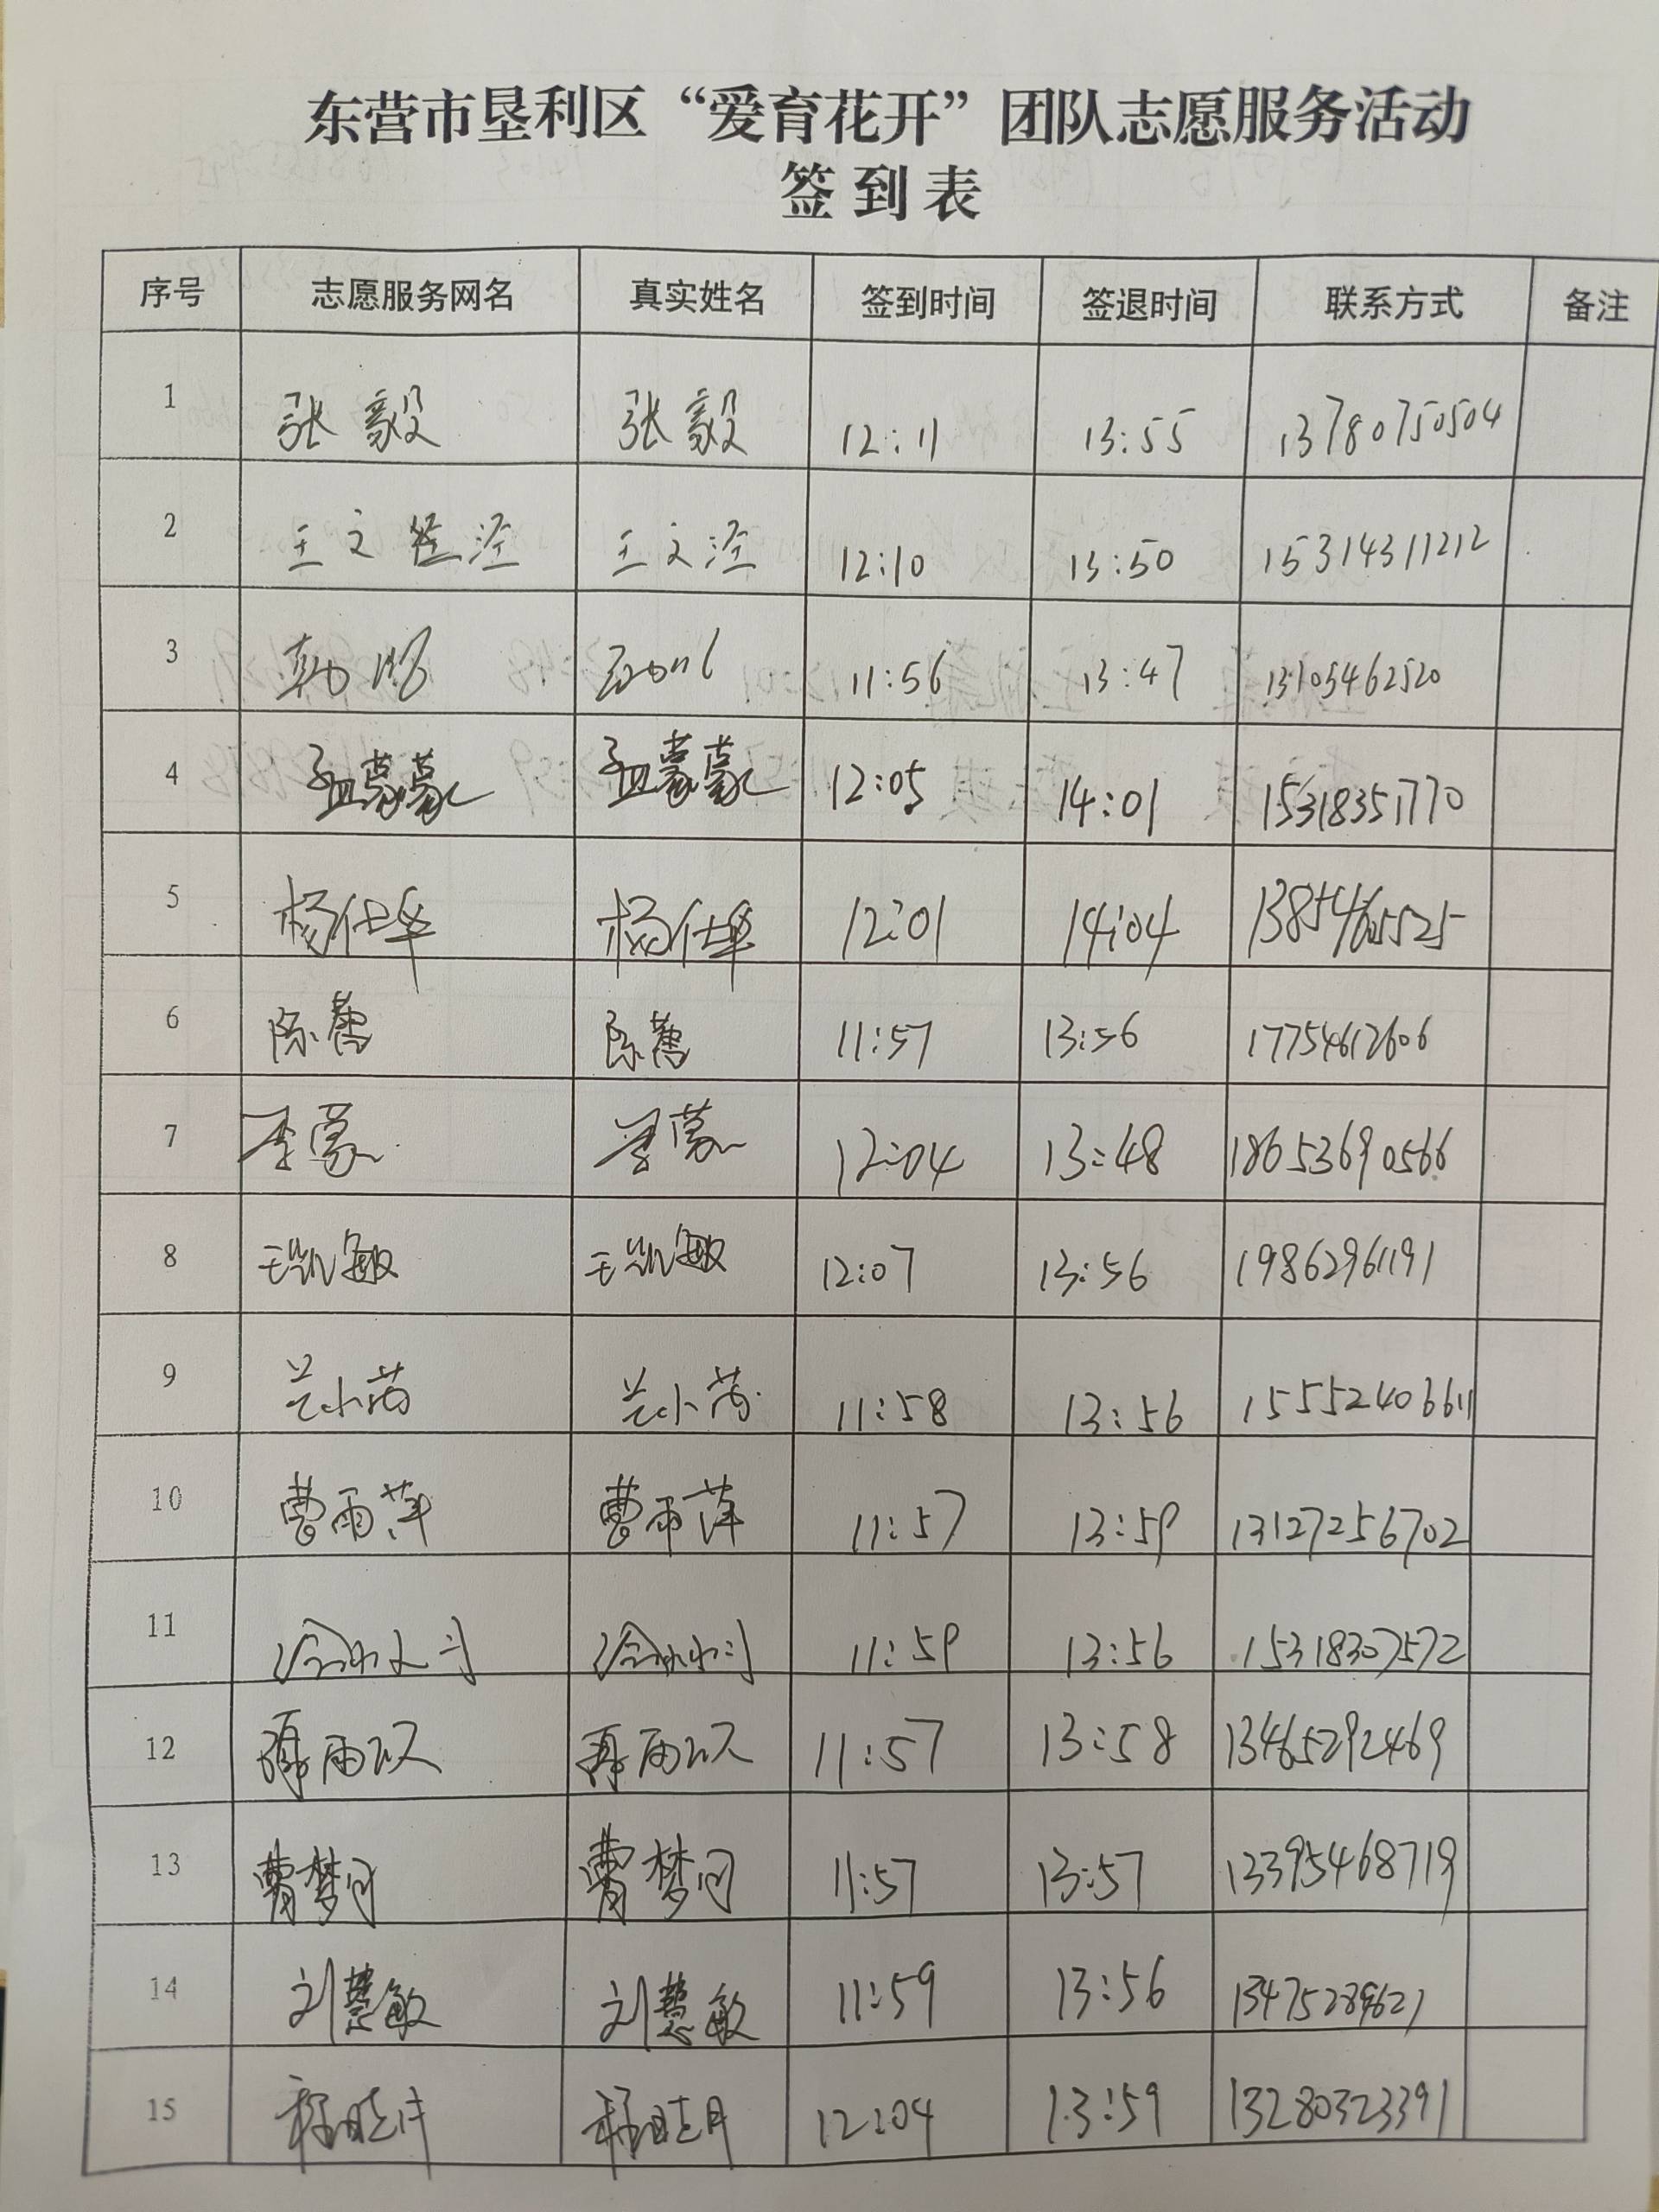 东营市垦利区“爱育花开”团队志愿服务活动
签到表
序号 志愿服务网名 真实姓名 签到时间 签退时间 联系方式 备注
1 张毅 张毅 12:11 13:55 13780750504
2 王文 泾 王文泾 12:10 13:50 15314311212
3 11:56 13:47 13105462520
4 孟蒙蒙 孟蒙蒙 12:05 14:01 15318351770
5 杨仕华 杨仕华 12:01 14:04 13854605525
6 陈蕾 陈蕾 11:57 13:56 17754612606
7 李蒙 李蒙 12:04 13:48 18653690566
8 王凯敏 王凯敏 12:07 13:56 19862961191
9 兰小芮 兰小芮 11:58 13:56 15552406611
10 曹雨萍 曹雨萍 11:57 13:59 13127256702
11 11:59 13:56 15318307572
12 11:57 13:58 13465292469
13 曹梦问 曹梦问 11:57 13:57 13395468719
14 刘慧敏 刘慧敏 11:59 13:56 13475289621
15 程晓丹 程晓丹 12:04 13:59 13280323391